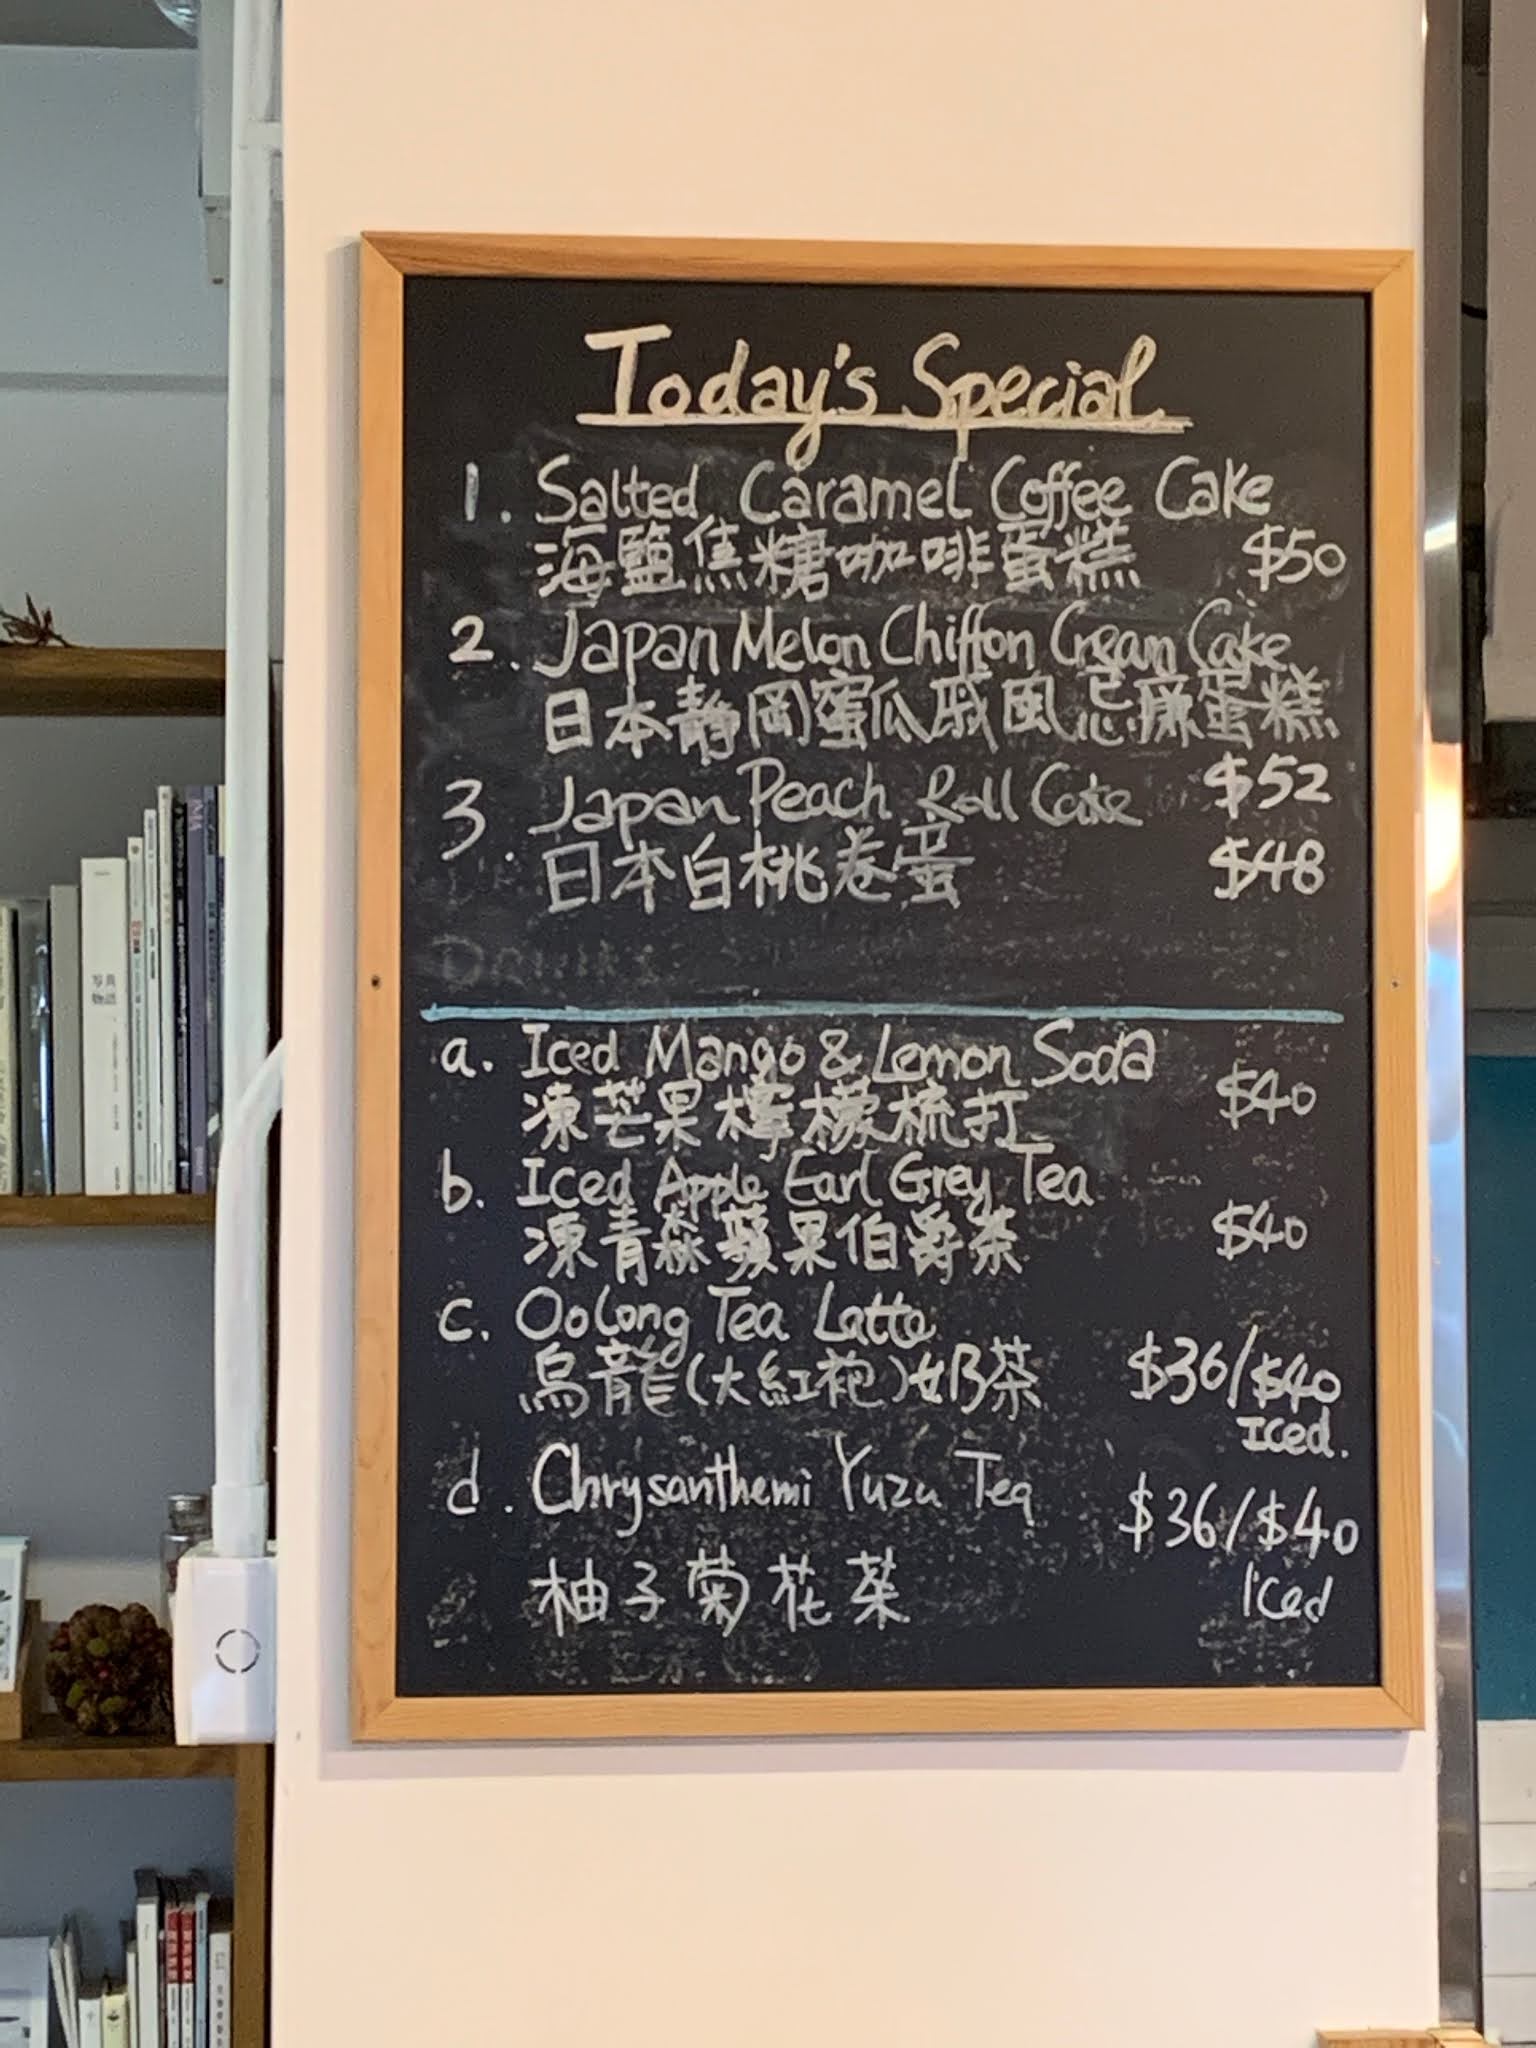 Today's Special
1. Salted Caramel Coffee Cake
海鹽焦糖咖啡蛋糕 $50
2. Japan Melon Chiffon Cream Cake
日本靜岡蜜瓜戚風忌廉蛋糕
$52
3. Japan Peach Roll Cake
日本白桃卷蛋 $48
a. Iced Mango & Lemon Soda
凍芒果檸檬梳打 $40
b. Iced Apple Earl Grey Tea
凍青森蘋果伯爵茶 $40
c. Oolong Tea Latte
烏龍(大紅袍)奶茶 $36/$40
Iced.
d. Chrysanthemi Yuzu Tea $36/$40
柚子菊花茶 Iced